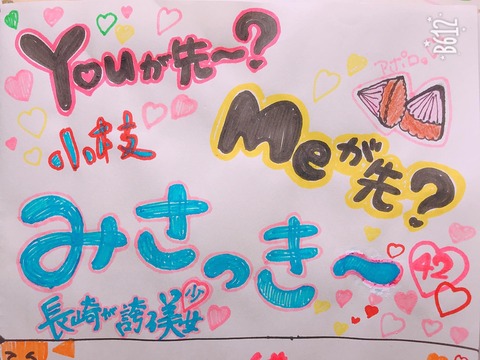 Youが先〜?
B612
アポロ
小枝
Meが先?
みさっき〜
42
長崎が誇る美少女